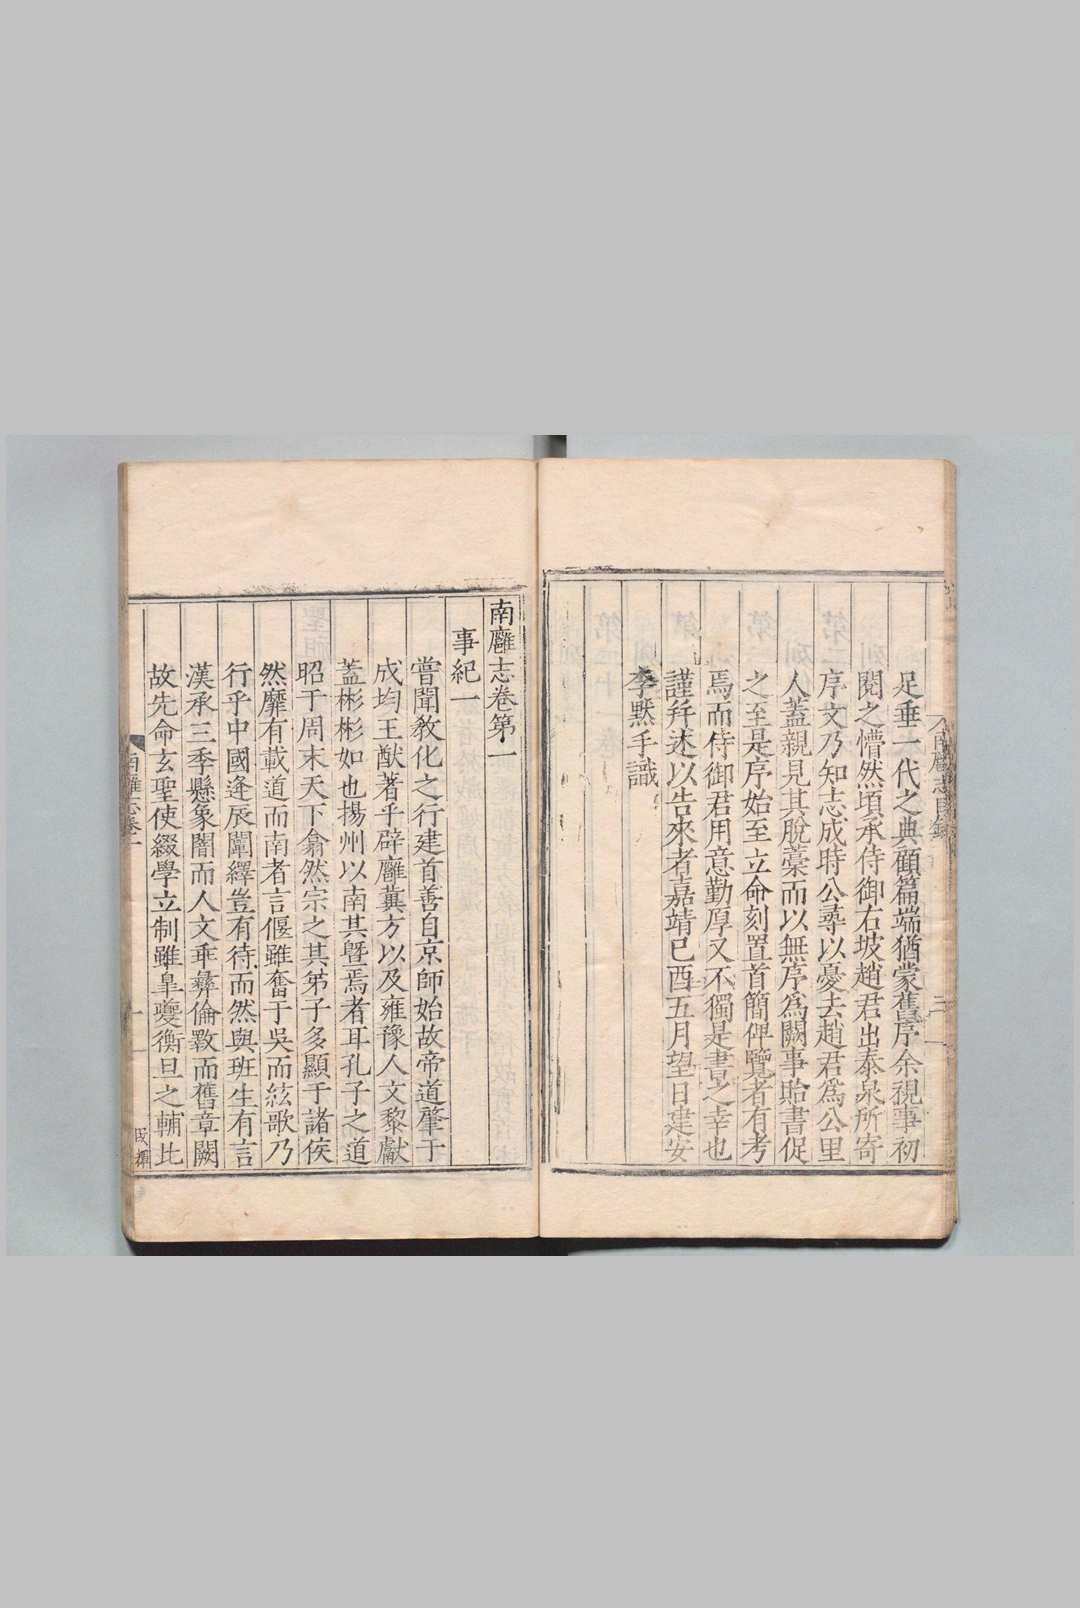 足垂一代之典顧篇端猶蒙舊序余視事初
閱之懵然頃承侍御右坡趙君出泰泉所寄
序文乃知志成時公尋以憂去趙君為公里
人蓋親見其脫藁而以無序為闕事貽書促
之至是序始至立命刻置首簡俾覽者有考
焉而侍御君用意勤厚又不獨是書之幸也
謹并述以告來者嘉靖己酉五月望日建安
李默手識
南廱志卷第一
事紀一
嘗聞教化之行建首善自京師始故帝道肇于
成均王猷著乎辟廱冀方以及雍豫人文黎獻
蓋彬彬如也揚州以南其曁焉者耳孔子之道
昭于周末天下翕然宗之其弟子多顯于諸侯
然靡有載道而南者言偃雖奮于吳而絃歌乃
行乎中國逢辰闡繹豈有待而然與班生有言
漢承三季懸象闇而人文乖彝倫斁而舊章闕
故先命玄聖使綴學立制雖臯夔衡旦之輔比
南雍志卷一
一